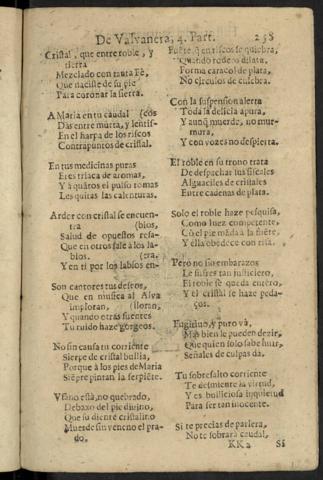 De Valvanera, 4. Part. 258
Cristal, que entre roble, y
sierra
Mezclado con tanta Fè,
Que naciste de su pie
Para coronar la sierra.
A Maria en tu caudal (cos
Das entre murta, y lentis-
En el harpa de los riscos
Contrapuntos de cristal.
En tus medicinas puras
Eres triaca de aromas,
Y a quãtos el pulso tomas
Les quitas las calenturas.
Arder con cristal se encuen-
tra (bios,
Salud de opuestos resa-
Que en otros sale à los la-
bios. (tra.
Y en ti por los labios en-
Son cantores tus deseos,
Que en musica al Alva
imploran, (lloran,
Y quando otras fuentes
Tu ruido haze gorgeos.
No sin causa tu corriente
Sierpe de cristal bullia,
Porque à los pies de Maria
Siẽpre pintan la serpiẽte.
Vfano està, no quebrado,
Debaxo del pie divino,
Que su diente cristalino
Muerde sin veneno el pra-
do,
Fuerte, q̃ en riscos se quiebra,
Quando rodeos dilata,
Forma caracol de plata,
No circulos de culebra.
Con la suspension alerta
Toda la delicia apura,
Y aunq̃ muerde, no mur-
mura,
Y con vozes no despierta.
El roble en su trono trata
De despachar sus fiscales
Alguaciles de cristales
Entre cadenas de plata.
Solo el roble haze pesquisa,
Como Iuez competente,
Cõ el pie mãda à la fuẽte,
Y ella obedece con risa.
Pero no sin embarazos
Le sufres tan justiciero,
El roble se queda entero,
Y el cristal se haze peda-
ços.
Fugitivo, y puro và,
Mas bien le pueden dezir,
Que quien solo sabe huir,
Señales de culpas dà.
Tu sobresalto corriente
Te desmiente la virtud,
Y es bulliciosa inquietud
Para ser tan inocente.
Si te precias de parlera,
No te sobrarà caudal,
KK 2 Si